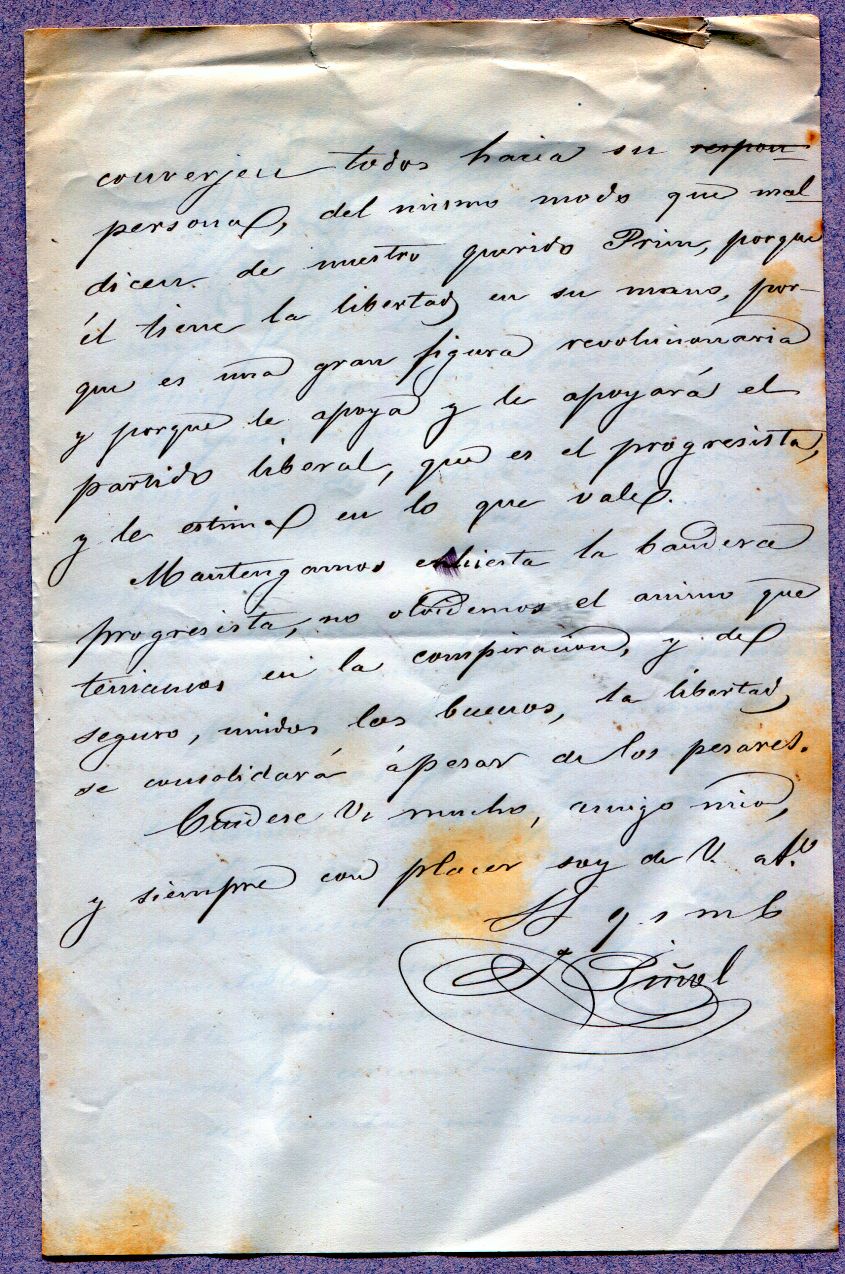 converjen todos hacia su respon-
persona, del mismo modo que mal-
dicen de nuestro querido Prim, porque
él tiene la libertad en su mano, por-
que es una gran figura revolucionaria
y porque le apoya y le apoyará el
partido liberal, que es el progresista,
y le estima en lo que vale.
Mantengamos enhiesta la bandera
progresista, no olvidemos el animo que
teniamos en la conspiracion, y de
seguro, unidos los buenos, la libertad
se consolidará ápesar de los pesares.
Cuidese V. mucho, amigo mio,
y siempre con placer soy de V. afº
S q s m b
J. Piñol